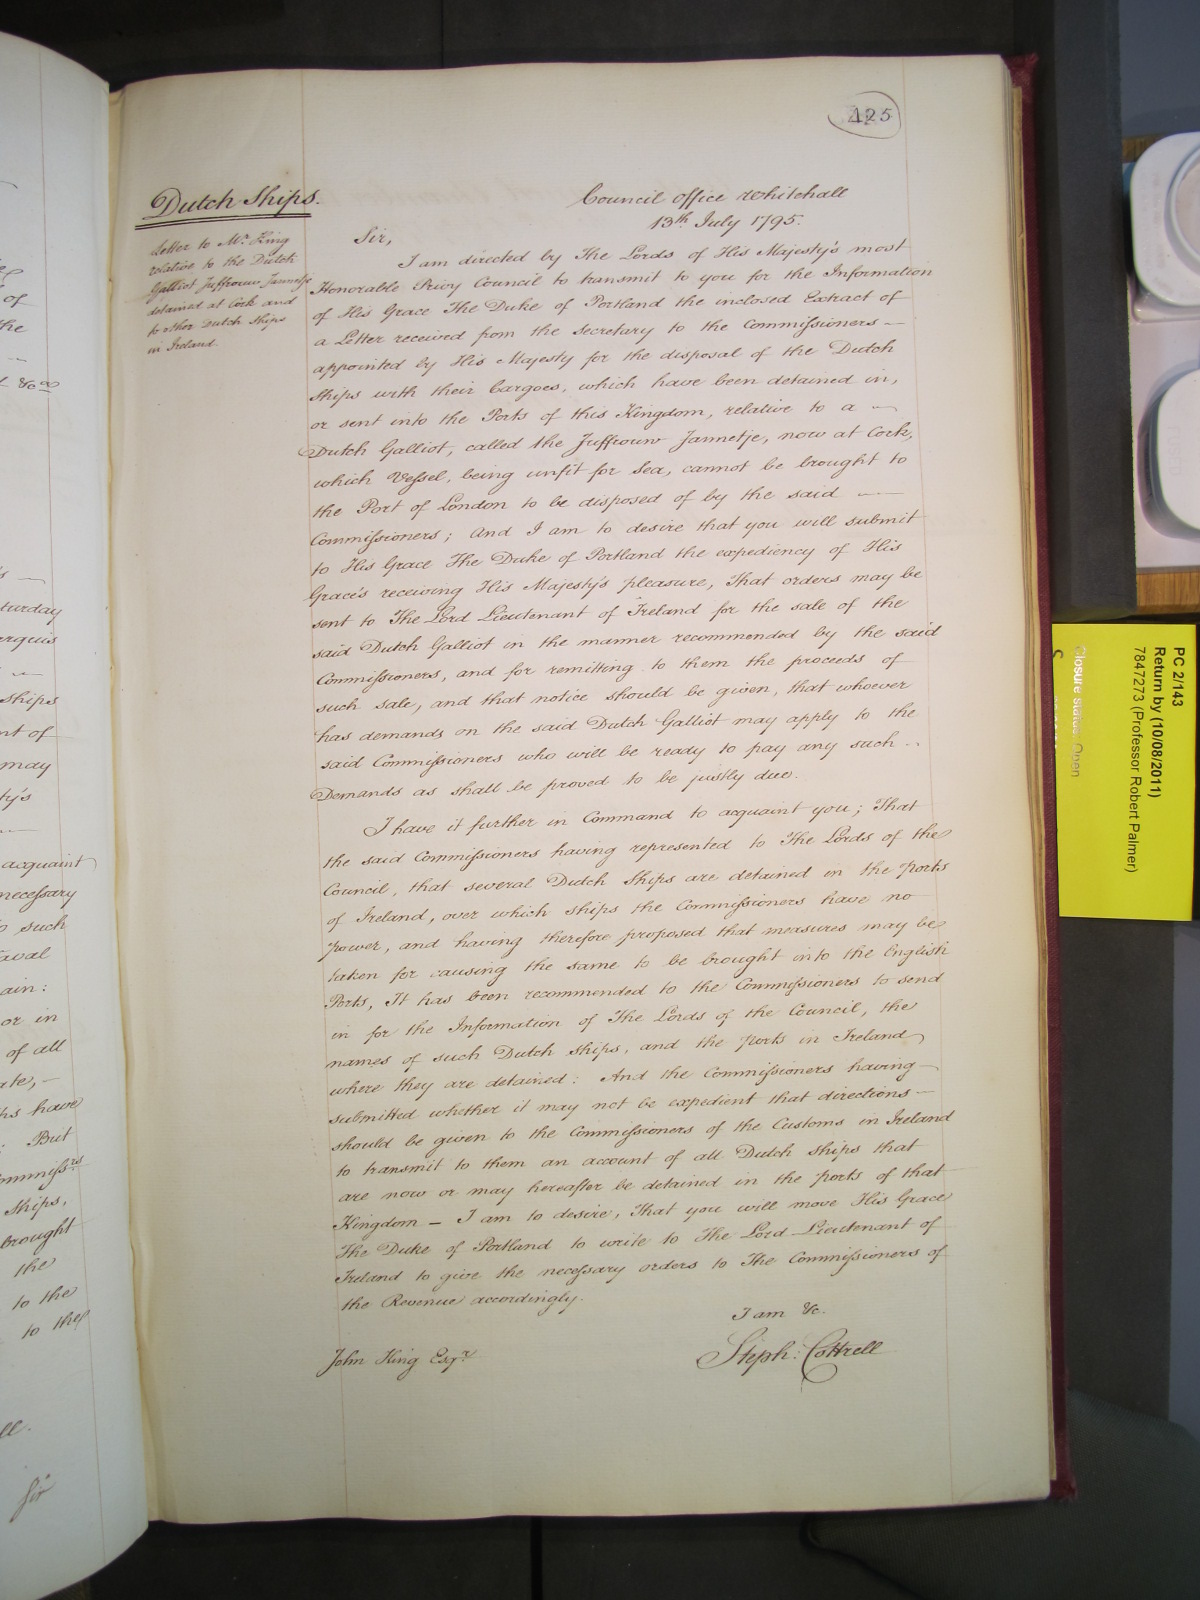 425
Dutch Ships.
Letter to Mr. King
relative to the Dutch
Galliot Juffrouw Jannetje
detained at Cork and
to other Dutch Ships
in Ireland.
Council Office Whitehall
13th. July 1795.
Sir,
I am directed by The Lords of His Majesty's most
Honorable Privy Council to transmit to you for the Information
of His Grace The Duke of Portland the inclosed Extract of
a Letter received from the Secretary to the Commissioners —
appointed by His Majesty for the disposal of the Dutch
Ships with their Cargoes, which have been detained in,
or sent into the Ports of this Kingdom, relative to a —
Dutch Galliot, called the Juffrouw Jannetje, now at Cork,
which Vessel, being unfit for Sea, cannot be brought to
the Port of London to be disposed of by the said —
Commissioners; And I am to desire that you will submit
to His Grace The Duke of Portland the expediency of His
Grace's receiving His Majesty's pleasure, That orders may be
sent to The Lord Lieutenant of Ireland for the sale of the
said Dutch Galliot in the manner recommended by the said
Commissioners, and for remitting to them the proceeds of
such sale, and that notice should be given, that whoever
has demands on the said Dutch Galliot may apply to the
said Commissioners who will be ready to pay any such -
Demands as shall be proved to be justly due.
I have it further in Command to acquaint you; That
the said Commissioners having represented to The Lords of the
Council, that several Dutch Ships are detained in the Ports
of Ireland, over which Ships the Commissioners have no
power, and having therefore proposed that measures may be
taken for causing the same to be brought into the English
Ports, It has been recommended to the Commissioners to send
in for the Information of The Lords of the Council, the
names of such Dutch Ships, and the Ports in Ireland
where they are detained: And the Commissioners having —
submitted whether it may not be expedient that directions —
should be given to the Commissioners of the Customs in Ireland
to transmit to them an account of all Dutch Ships that
are now or may hereafter be detained in the ports of that
Kingdom — I am to desire, That you will move His Grace
The Duke of Portland to write to The Lord Lieutenant of
Ireland to give the necessary orders to The Commissioners of
the Revenue accordingly.
I am &c.
Steph: Cottrell
John King Esqr.
of
the
&ca
turday
arquis
ships
nt of
may
ty's
acquaint
necessary
such
aval
ain:
or in
of all
ate, —
have
But
Ships,
brought
the
to the
to the
Sir
PC 2/143
Return by (10/08/2011)
7847273 (Professor Robert Palmer)
Closure status: Open